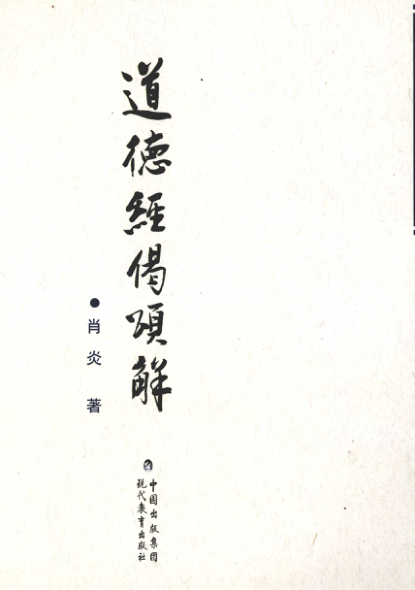 道德經偈頌解
肖炎 著
中国出版集团
现代教育出版社